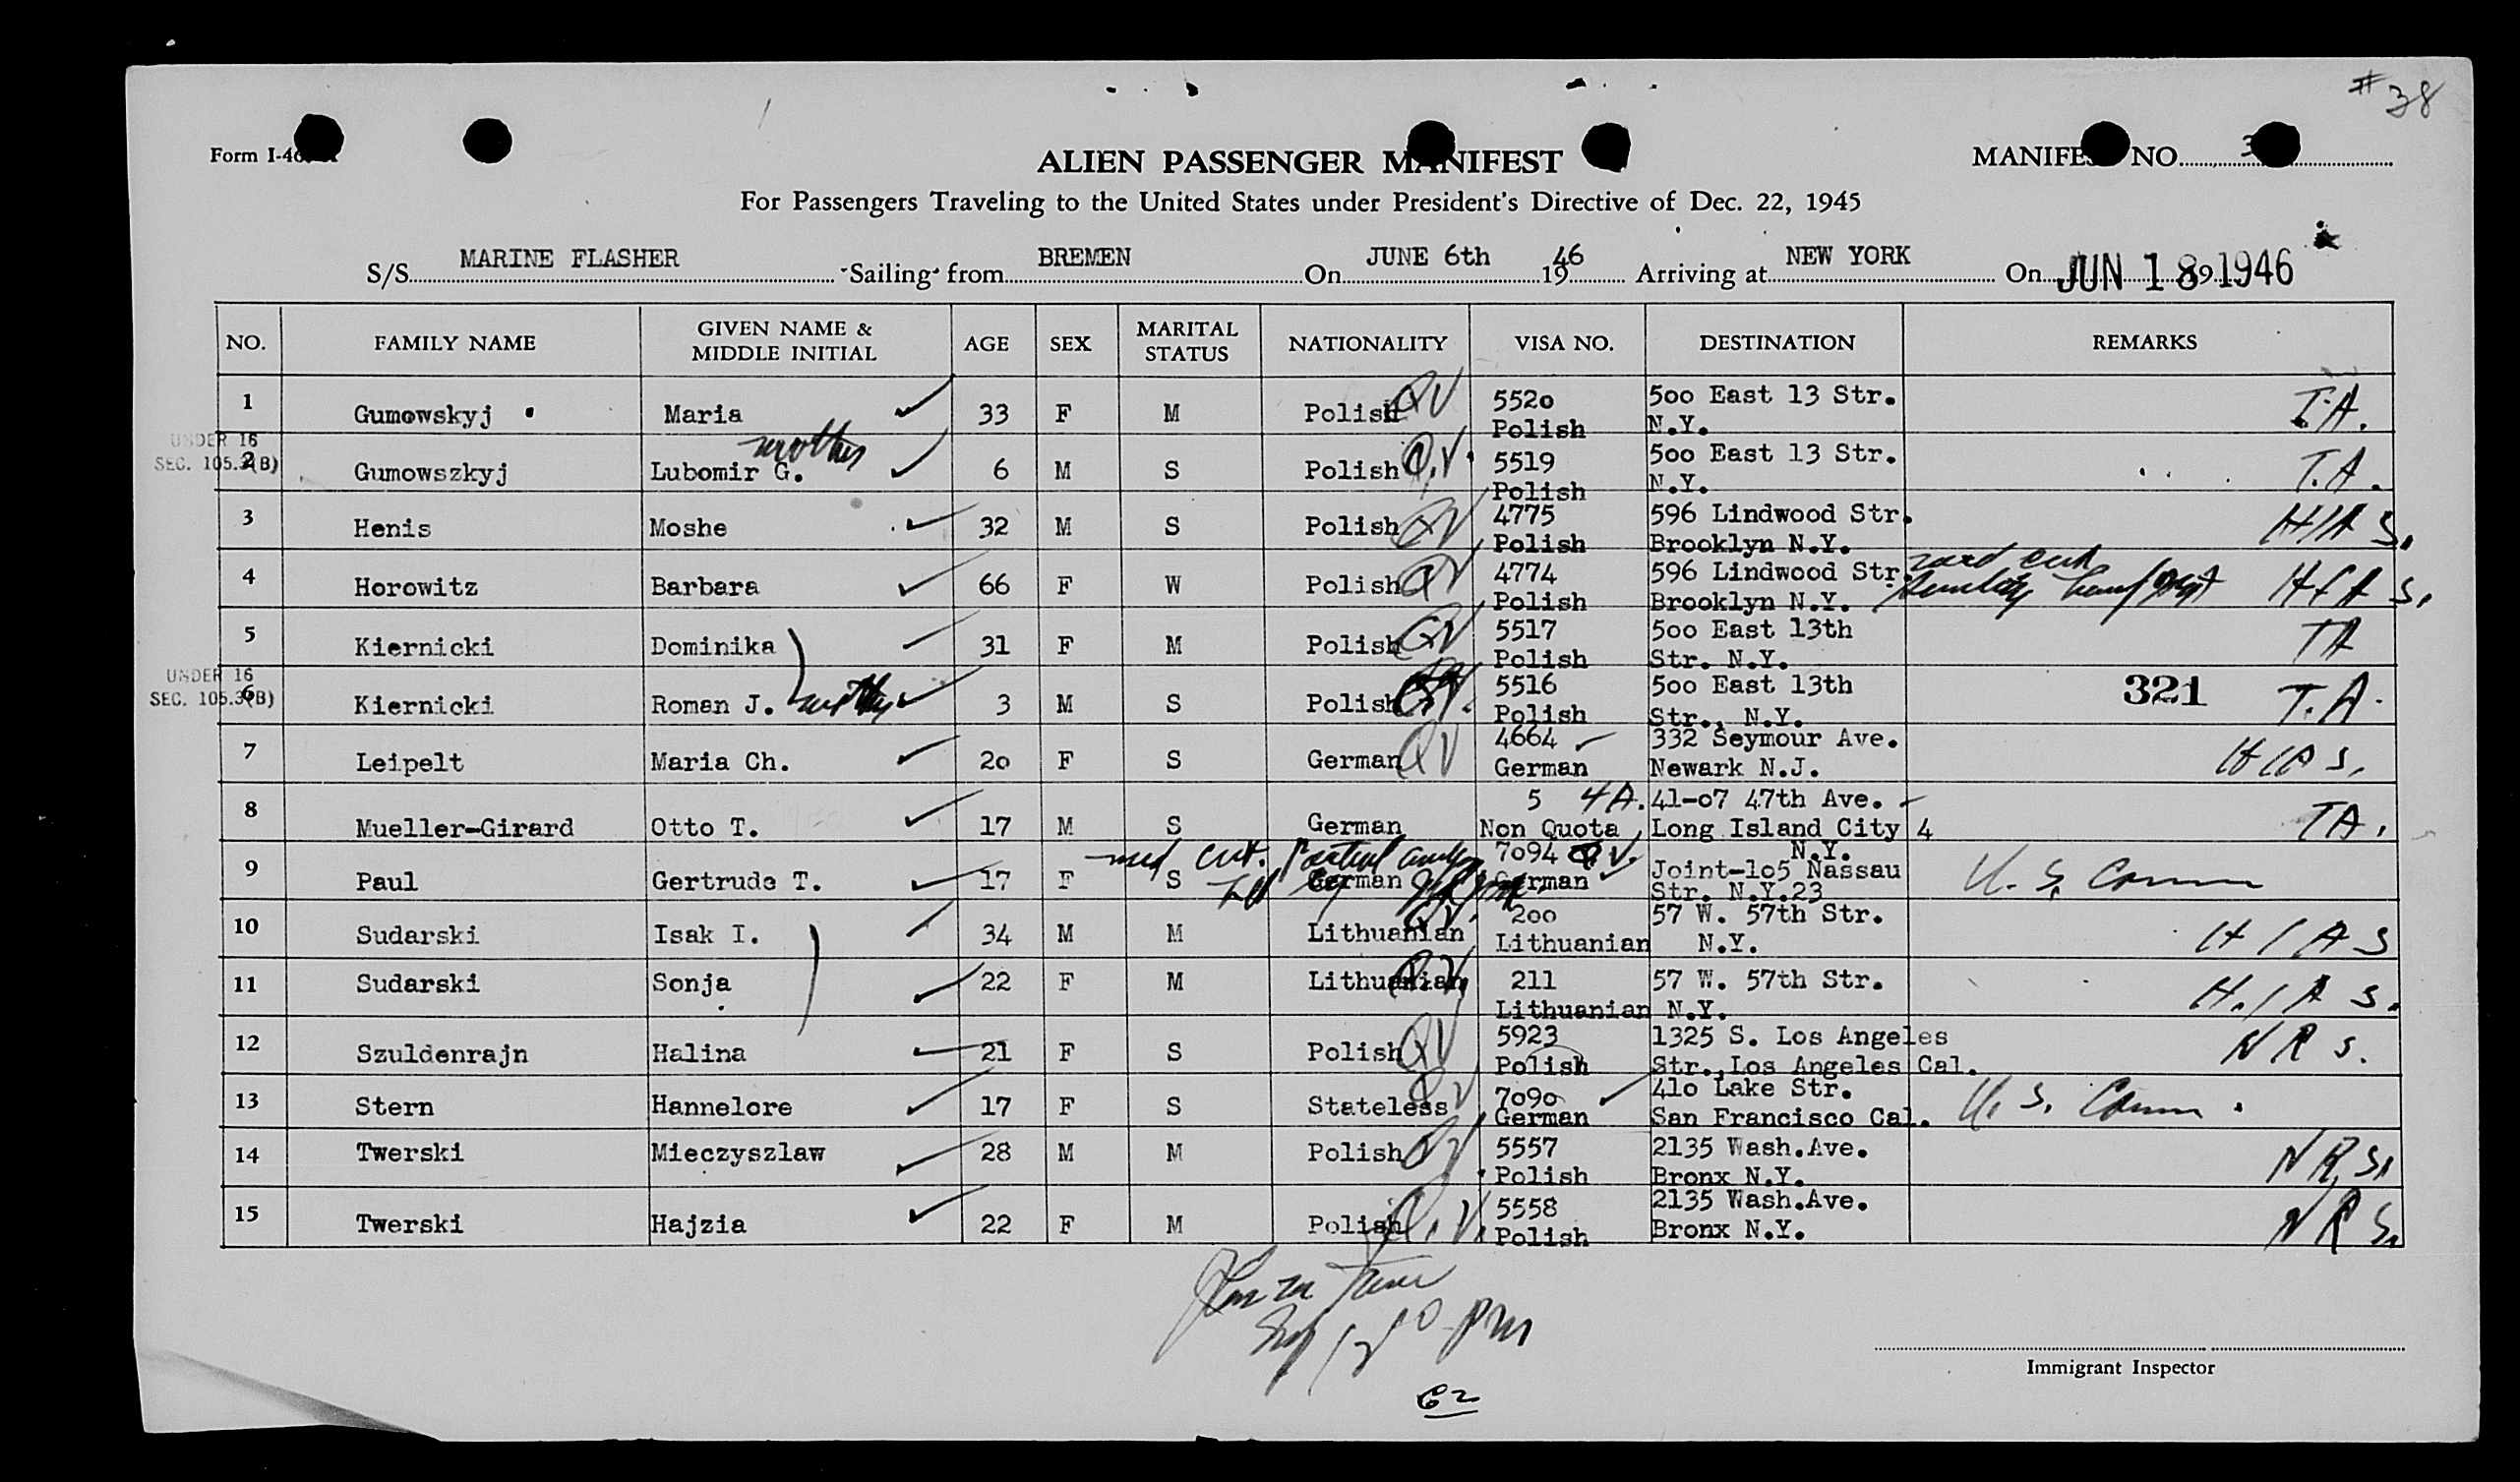 #38
Form I-46
ALIEN PASSENGER MANIFEST
MANIFEST NO. 3
For Passengers Traveling to the United States under President's Directive of Dec. 22, 1945
S/S MARINE FLASHER Sailing from BREMEN On JUNE 6th 1946 Arriving at NEW YORK On JUN 18 1946
NO. FAMILY NAME GIVEN NAME & MIDDLE INITIAL AGE SEX MARITAL STATUS NATIONALITY VISA NO. DESTINATION REMARKS
1 Gumowskyj Maria 33 F M Polish QV 5520 Polish 500 East 13 Str. N.Y. T.A.
UNDER 16
SEC. 105.3(B)
2 Gumowszkyj Lubomir G. mother 6 M S Polish Q.V. 5519 Polish 500 East 13 Str. N.Y. T.A.
3 Henis Moshe 32 M S Polish QV 4775 Polish 596 Lindwood Str. Brooklyn N.Y. HIAS.
4 Horowitz Barbara 66 F W Polish QV 4774 Polish 596 Lindwood Str. Brooklyn N.Y. med cert senility HIAS.
5 Kiernicki Dominika 31 F M Polish QV 5517 Polish 500 East 13th Str. N.Y. TA
UNDER 16
SEC. 105.3(B)
6 Kiernicki Roman J. mother 3 M S Polish QV. 5516 Polish 500 East 13th Str., N.Y. 321 T.A.
7 Leipelt Maria Ch. 20 F S German QV 4664 German 332 Seymour Ave. Newark N.J. HIAS.
8 Mueller-Girard Otto T. 17 M S German 5 4A. Non Quota 41-07 47th Ave. Long Island City 4 N.Y. TA.
9 Paul Gertrude T. 17 F S med cert. partial German 7094 Q.V. German Joint-105 Nassau Str. N.Y.23 U.S. Comm
10 Sudarski Isak I. 34 M M Lithuanian QV. 200 Lithuanian 57 W. 57th Str. N.Y. HIAS
11 Sudarski Sonja 22 F M Lithuanian Q.V. 211 Lithuanian 57 W. 57th Str. N.Y. H.IAS.
12 Szuldenrajn Halina 21 F S Polish QV 5923 Polish 1325 S. Los Angeles Str.,Los Angeles Cal. NRS.
13 Stern Hannelore 17 F S Stateless QV 7090 German 410 Lake Str. San Francisco Cal. U.S. Comm.
14 Twerski Mieczyszlaw 28 M M Polish QV 5557 Polish 2135 Wash.Ave. Bronx N.Y. NRS.
15 Twerski Hajzia 22 F M Polish Q.V. 5558 Polish 2135 Wash.Ave. Bronx N.Y. NRS.
PM
62
Immigrant Inspector